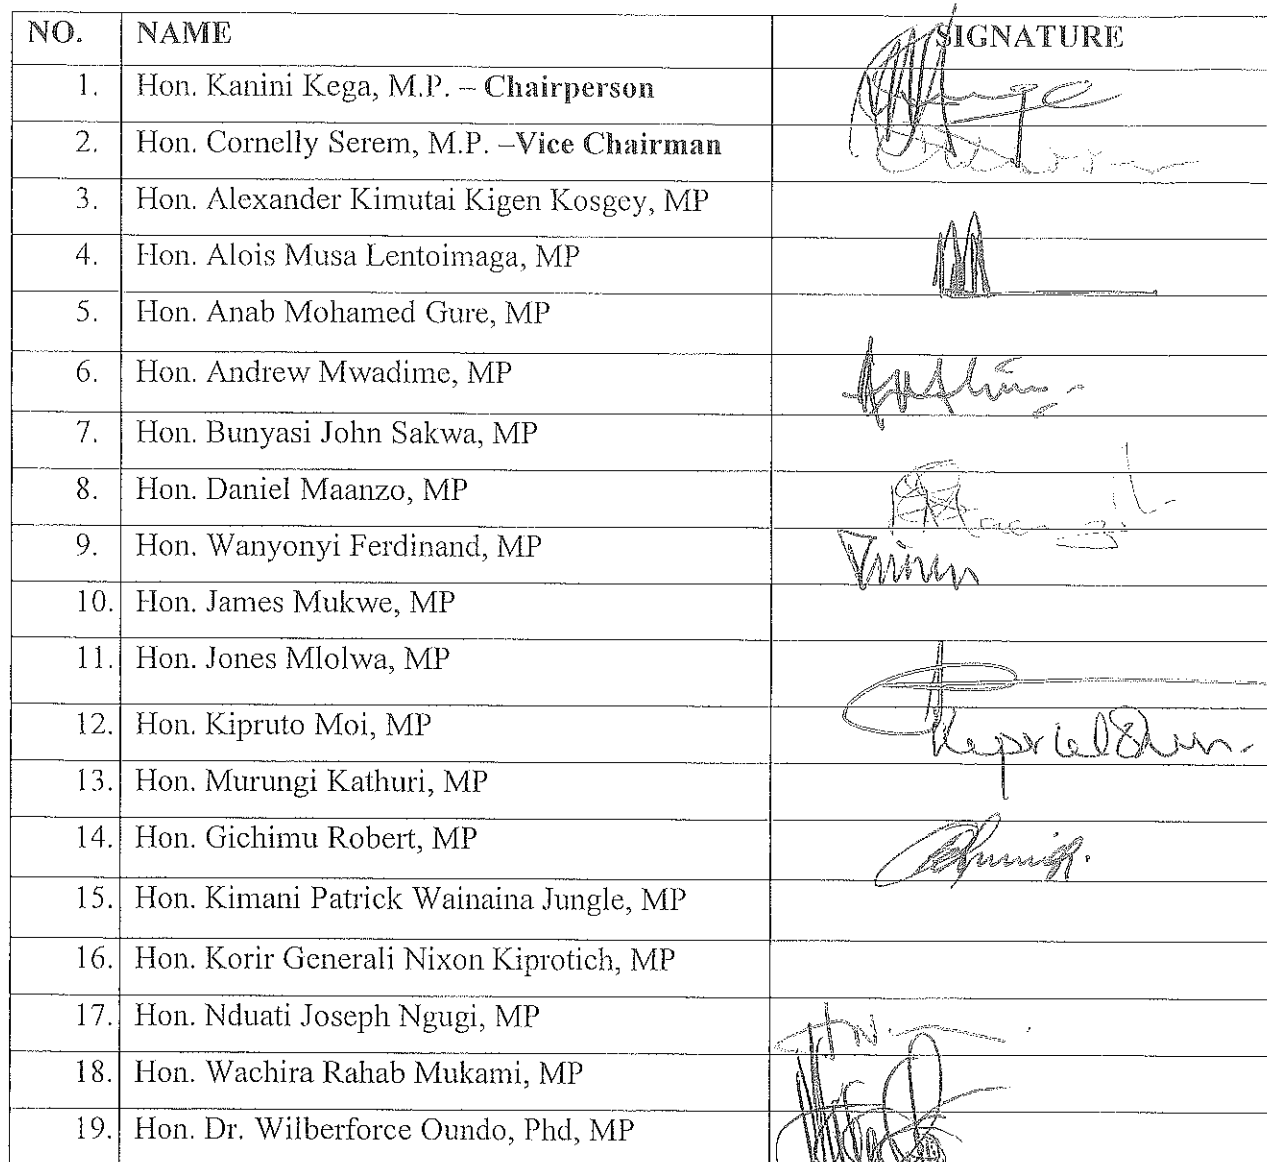 NO. NAME SIGNATURE
1. Hon. Kanini Kega, M.P. – Chairperson
2. Hon. Cornelly Serem, M.P. –Vice Chairman
3. Hon. Alexander Kimutai Kigen Kosgey, MP
4. Hon. Alois Musa Lentoimaga, MP
5. Hon. Anab Mohamed Gure, MP
6. Hon. Andrew Mwadime, MP
7. Hon. Bunyasi John Sakwa, MP
8. Hon. Daniel Maanzo, MP
9. Hon. Wanyonyi Ferdinand, MP
10. Hon. James Mukwe, MP
11. Hon. Jones Mlolwa, MP
12. Hon. Kipruto Moi, MP
13. Hon. Murungi Kathuri, MP
14. Hon. Gichimu Robert, MP
15. Hon. Kimani Patrick Wainaina Jungle, MP
16. Hon. Korir Generali Nixon Kiprotich, MP
17. Hon. Nduati Joseph Ngugi, MP
18. Hon. Wachira Rahab Mukami, MP
19. Hon. Dr. Wilberforce Oundo, Phd, MP